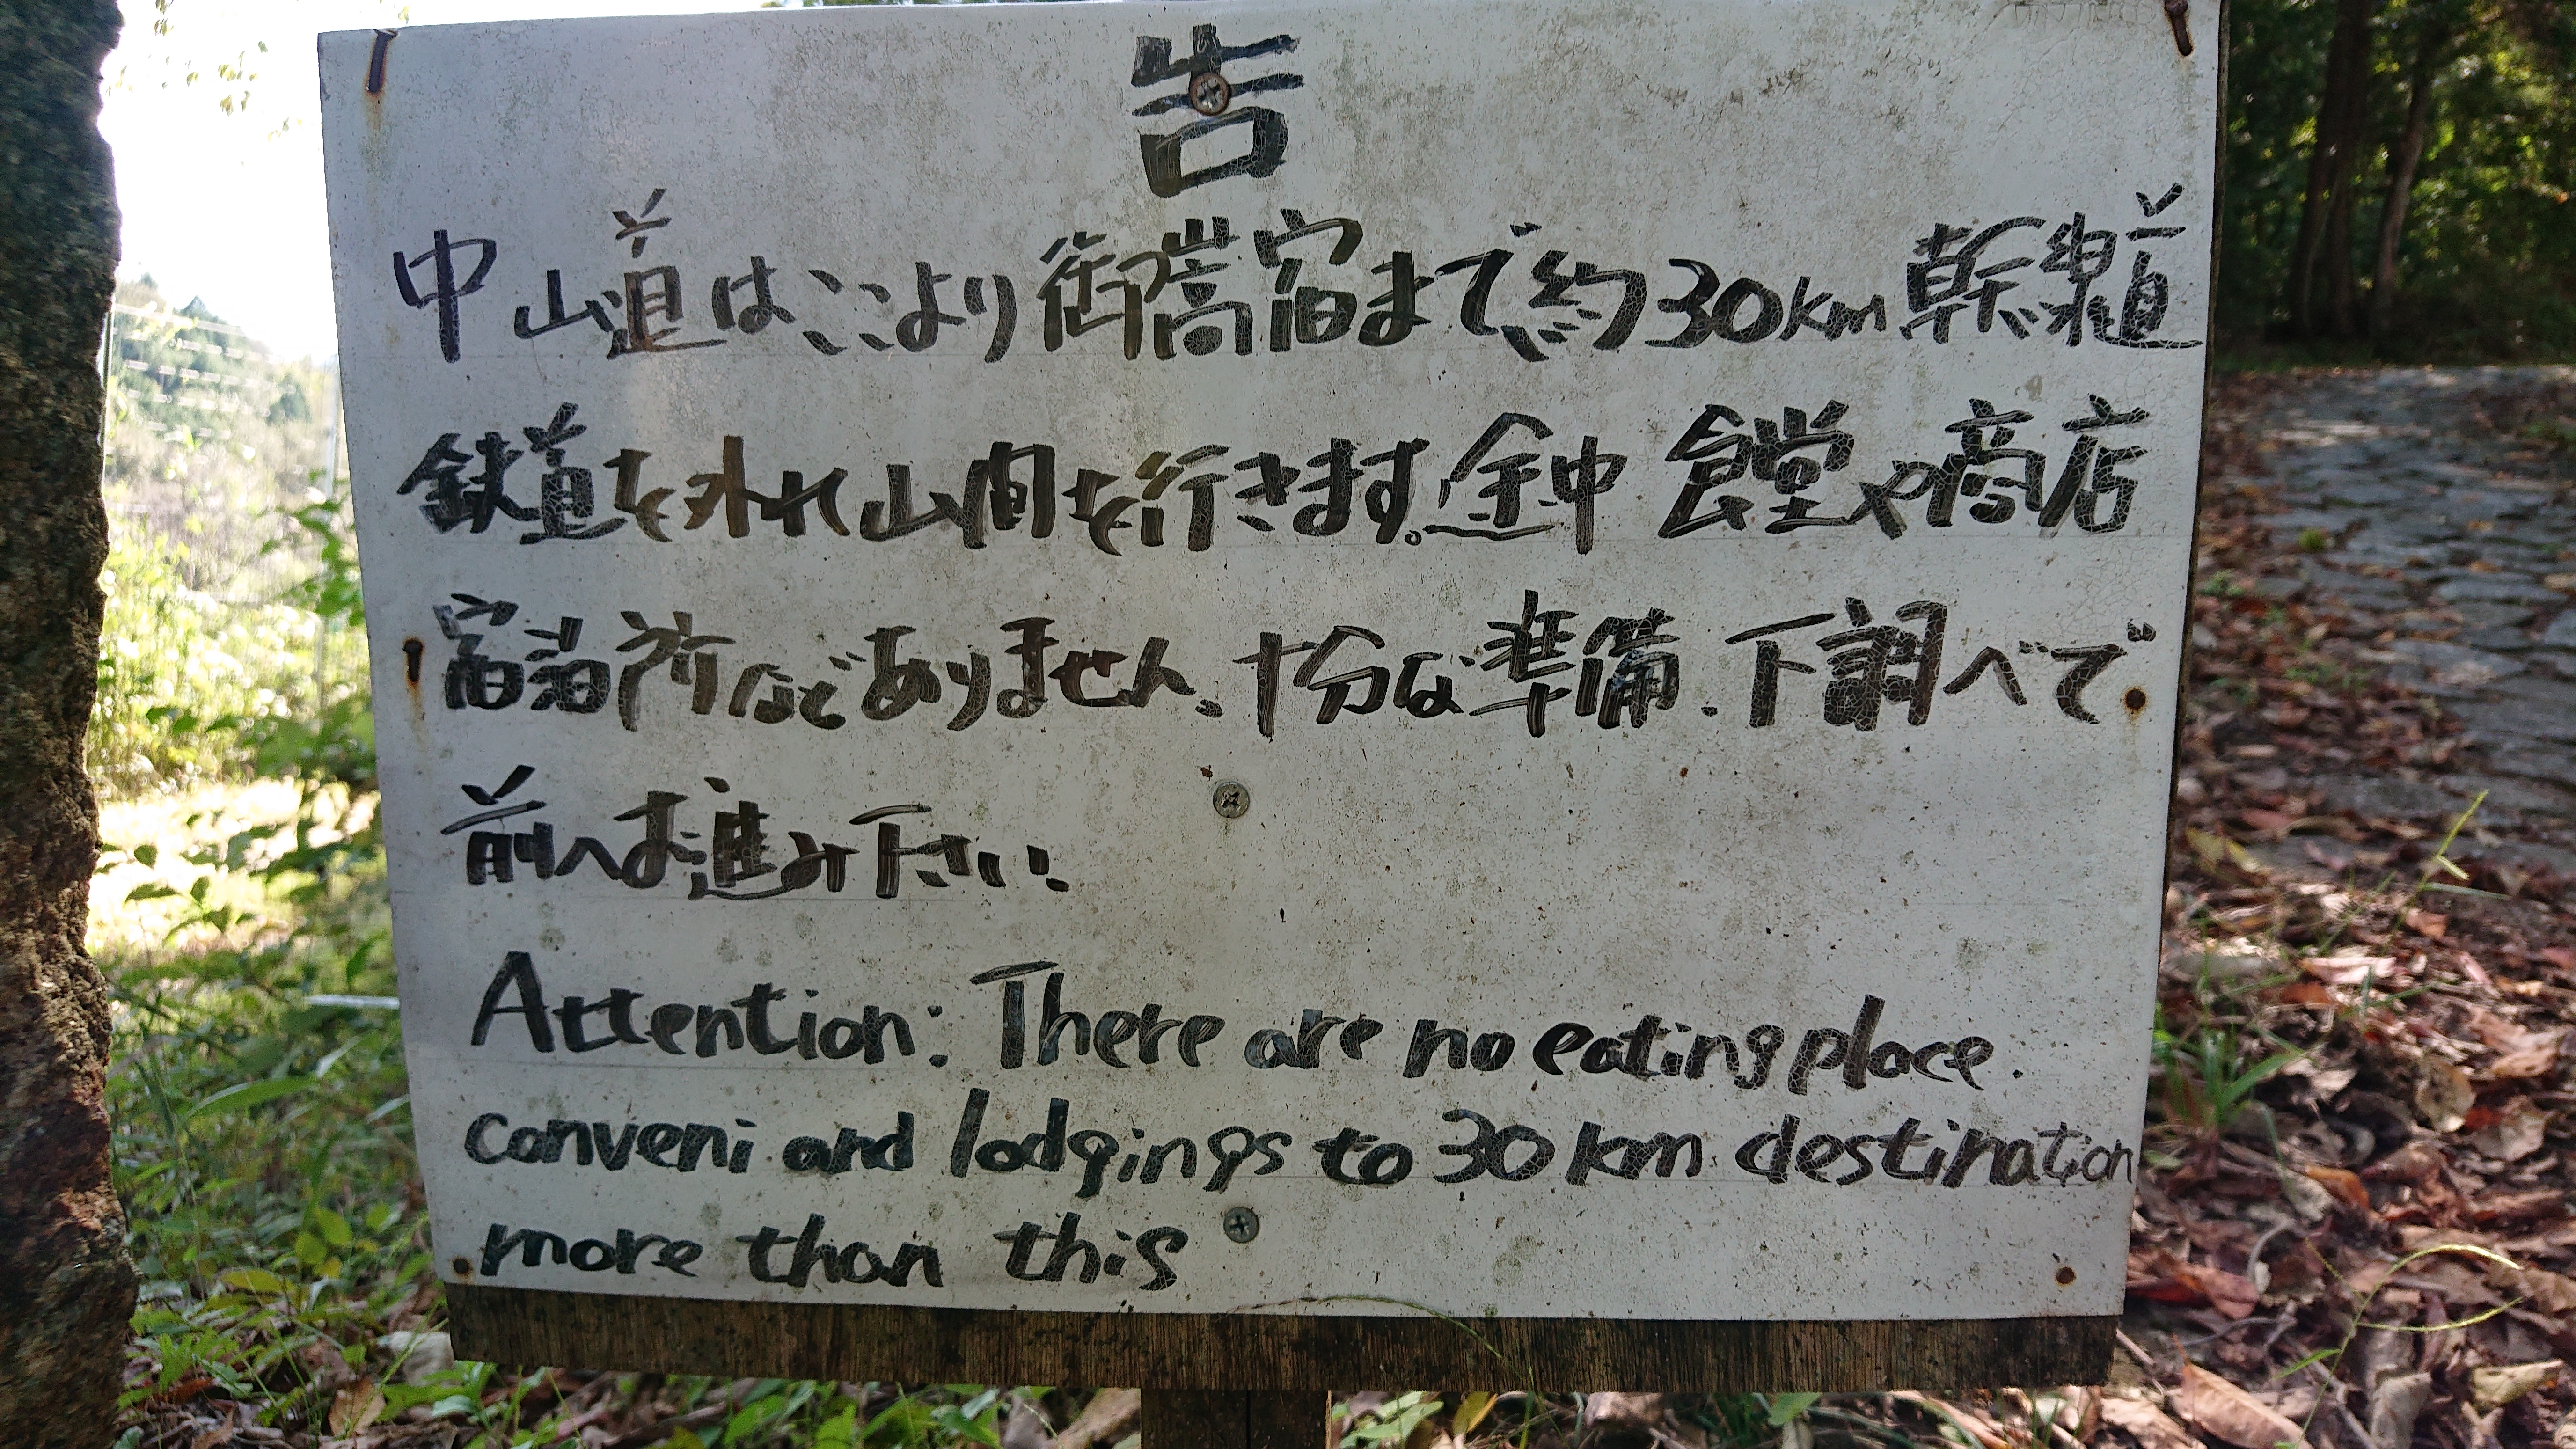 告
中山道はここより御嵩宿まで約30km幹線道
鉄道を外れ山間を行きます。途中 食堂や商店
宿泊所などありません、十分な準備.下調べで
前へお進み下さい.
Attention: There are no eating place.
conveni and lodgings to 30km destination
more than this